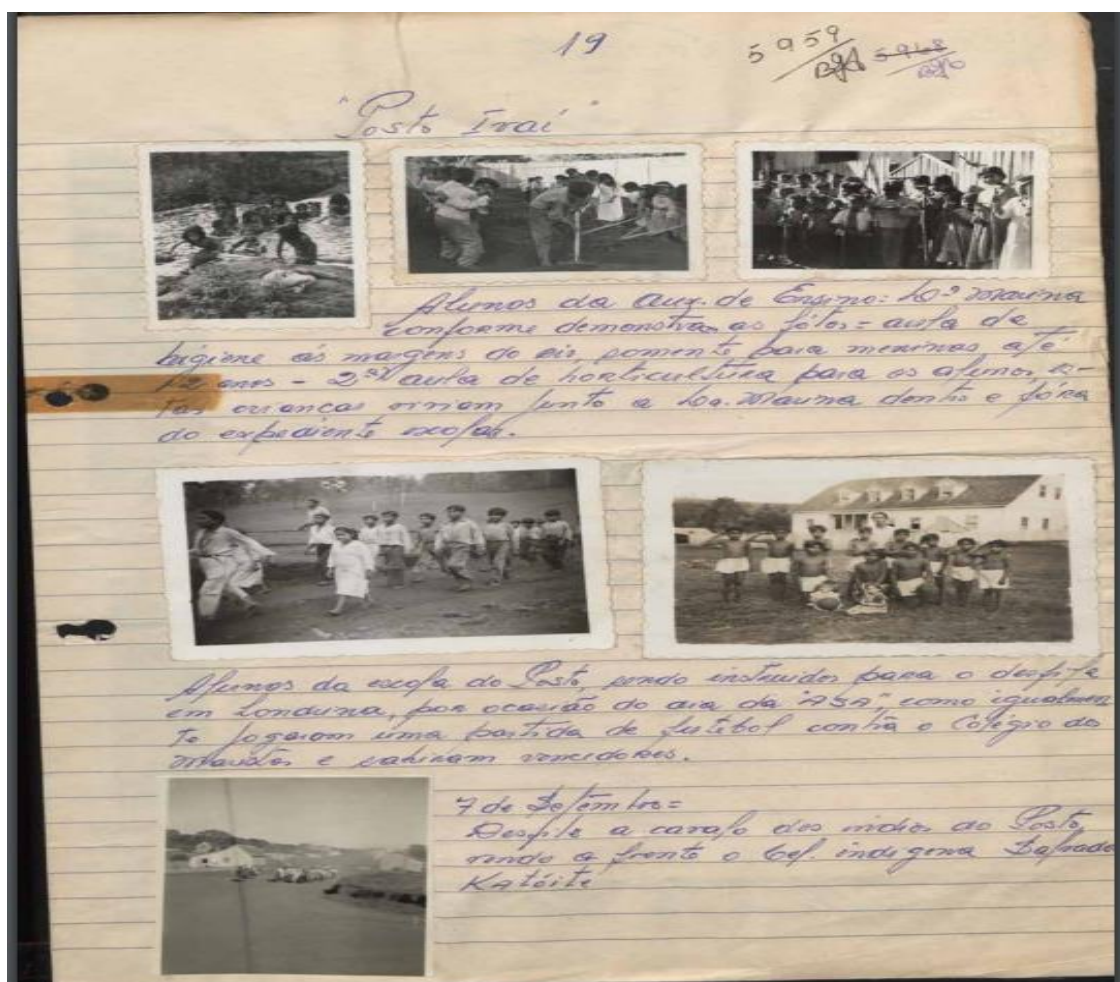 19
5959
5968
"Posto Ivaí"
Alunos da Aux. de Ensino: Dª Maurina
conforme demonstram as fótos = aula de
higiene ás margens do rio, somente para meninas até
12 anos - 2ª aula de horticultura para os alunos, es-
tas crianças viviam junto a Da. Maurina dentro e fóra
do expediente escolar.
Alunos da escola do Posto, sendo instruidos para o desfile
em Londrina, por ocasião do dia da "ASA", como igualmen
te jogaram uma partida de futebol contra o Colégio dos
Maristas e sahiram vencedores.
7 de Setembro =
Desfile a cavalo dos indios do Posto,
vendo a frente o Cel. indigena
Katóite